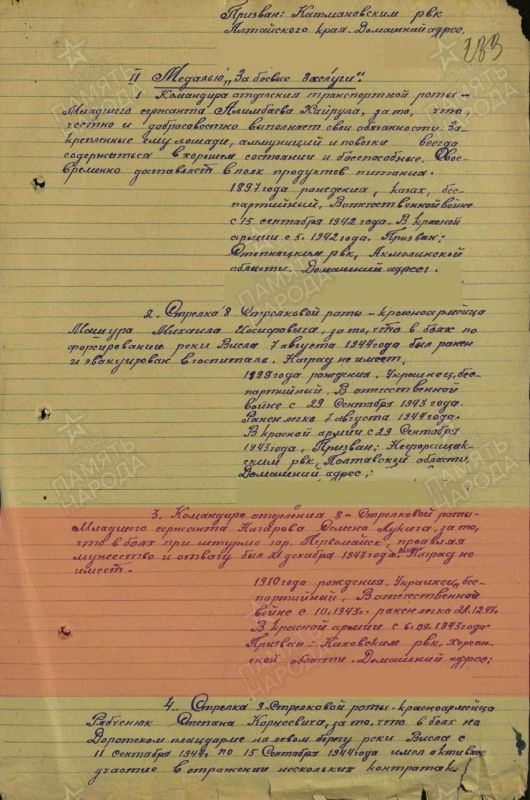 Призван: Катмановским рвк
Алтайского края. Домашний адрес.
II Медалью „За боевые заслуги“
1 Командира отделения транспортной роты –
Младшего сержанта Алимбаева Хайрула, за то, что,
честно и добросовестно выполняет свои обязанности. За-
крепленные ему лошади, аммуниций и повозки всегда
содержаться в хорошем состоянии и боеспособные. Свое-
временно доставляет в полк продуктов питания.
1897 года рождения, казах, бес-
партийный. В отечественной войне
с 15 сентября 1942 года. В красной
армии с 5. 1942 года. Призван:
Степняцким рвк, Акмолинской
области. Домашний адрес:
2. Стрелка 8 Стрелковой роты – красноармейца
Мащура Михаила Иосифовича, за то, что в боях по
форсированию реки Висла 7 августа 1944 года был ранен
и эвакуирован в госпиталь. Наград не имеет.
1899 года рождения, Украинец, бес-
партийный, В отечественной
войне с 29 Сентября 1943 года.
Ранен легко 7 августа 1944 года.
В красной армии с 29 Сентября
1943 года, Призван:
ским рвк, Полтавской области,
Домашний адрес;
3. Командира отделения 8 – Стрелковой роты –
Младшего сержанта Семена Лукича, за то,
что в боях при штурме гор. Первомайск, проявляя
мужество и отвагу был 21 декабря 1943 года. ранен Наград не
имеет.
1910 года рождения Украинец, бес-
партийный, В отечественной
войне с 10. 1943 г. ранен легко 21.12.43 г.
В красной армии с 6.09.1943 года
Призван – Каховским рвк, Херсон-
ской области. Домашний адрес;
4. Стрелка 9 – Стрелковой роты – красноармейца
Рябченюк Степана Корнеевича, за то, что в боях на
плацдарме на левом берегу реки Висла с
11 сентября 1944 г. по 15 Сентября 1944 года имел активное
участие в отражении нескольких контратак
ПАМЯТЬ НАРОДА